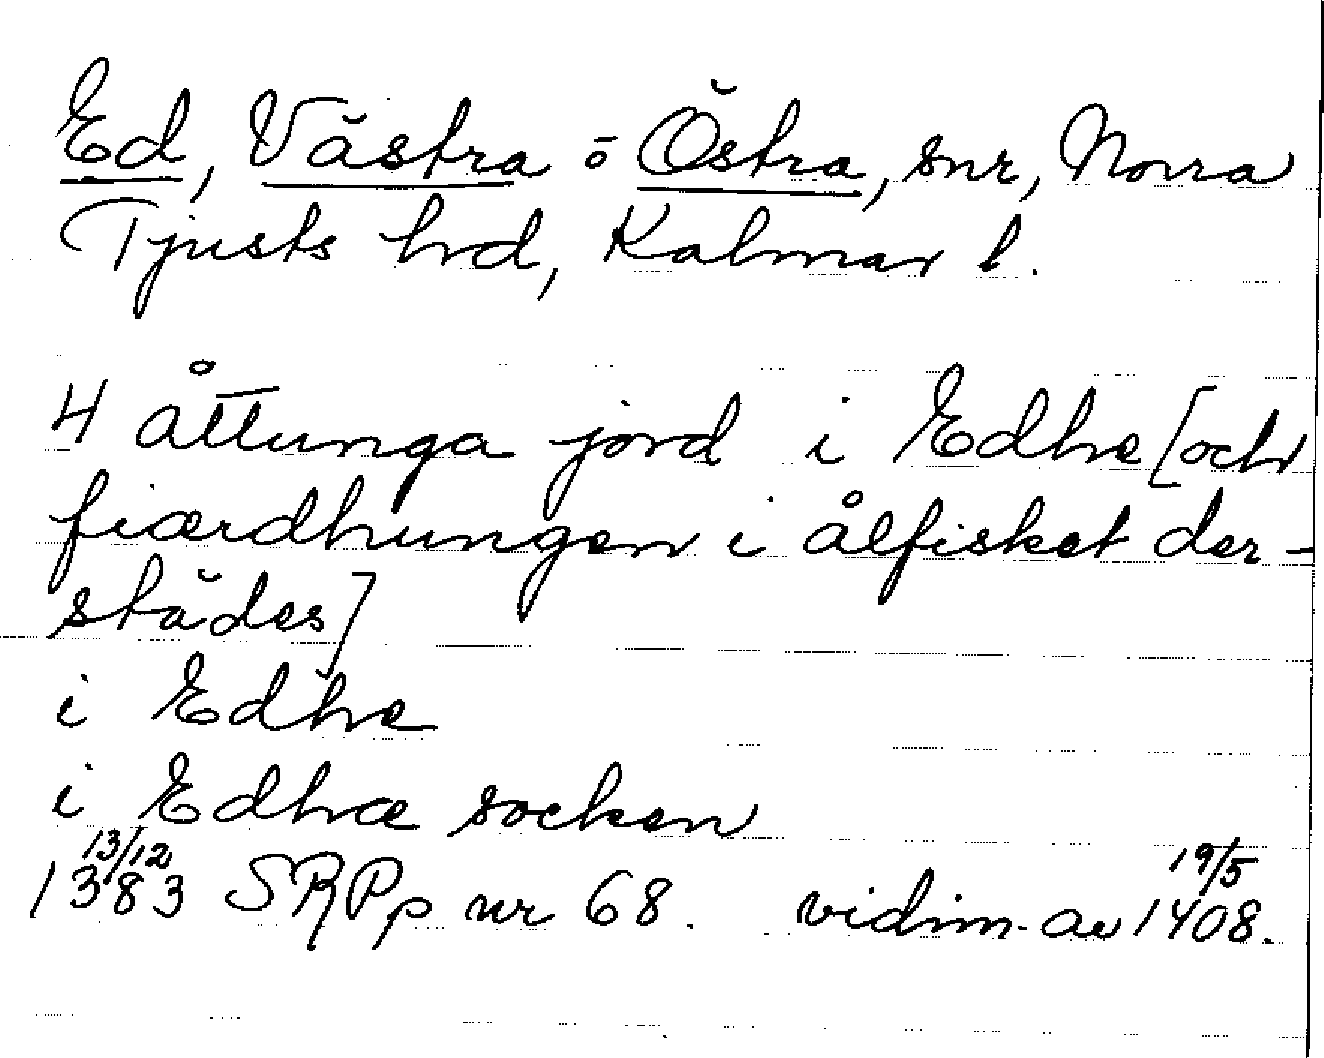 Ed, Västra o Östra, snr, Norra
Tjusts hrd, Kalmar l.
4 åttunga jord i Edhe [och
fiærdhungen i ålfisket der-
städes]
i Edhe
i Edhæ socken
13/12 19/5
1383 SRPp nr 68. vidim. av 1408.